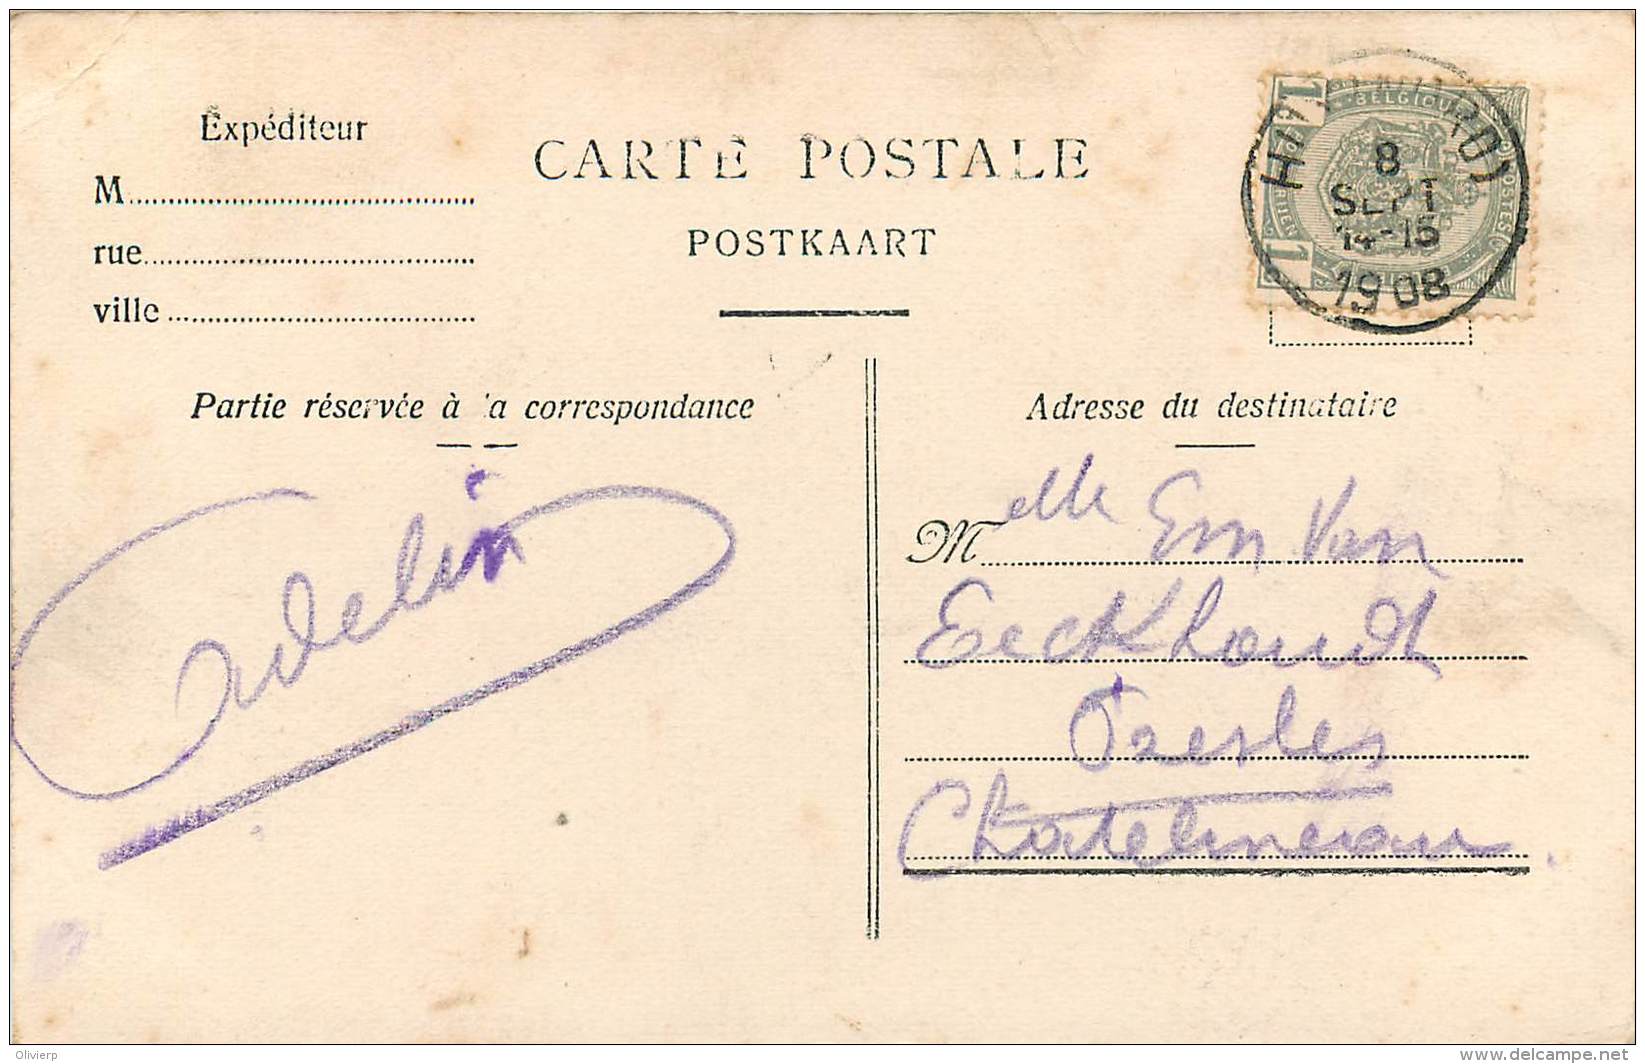 Expéditeur
M
rue
ville
CARTE POSTALE
POSTKAART
BELGIQUE
POSTES
1
1
8
SEPT
14-15
1908
Partie réservée à la correspondance
Adresse du destinataire
Adelin
Melle Em Van
Eeckhoudt
Presles
Chatelineau
Olivierp
www.delcampe.net